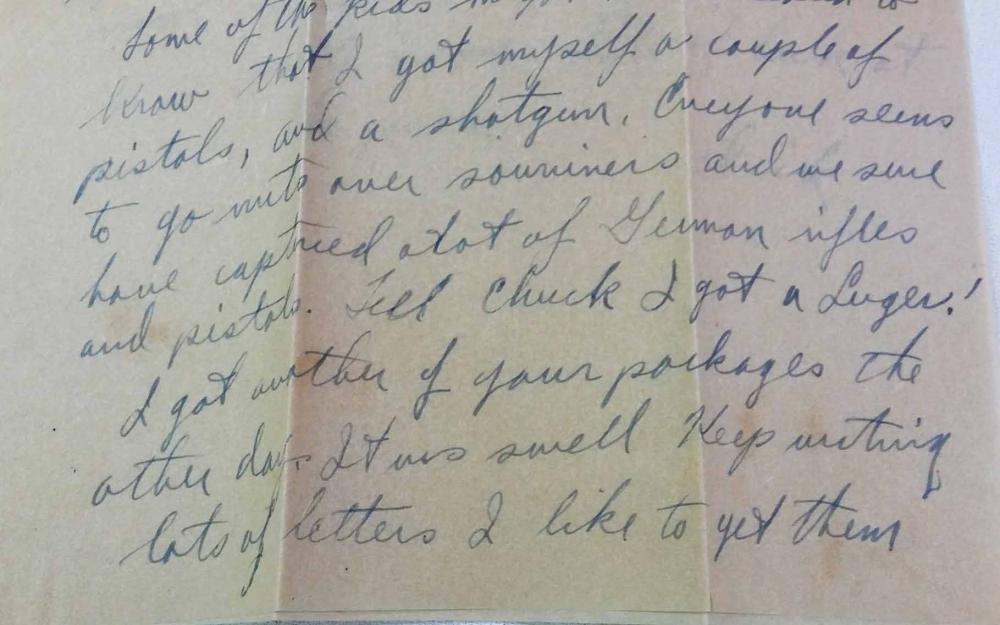 Some of the kids
know that I got myself a couple of
pistols, and a shotgun. Everyone seems
to go nuts over souviners and we sure
have captured alot of German rifles
and pistols. Tell Chuck I got a Luger!
I got another of your packages the
other day. It was swell Keep writing
lots of letters I like to get them